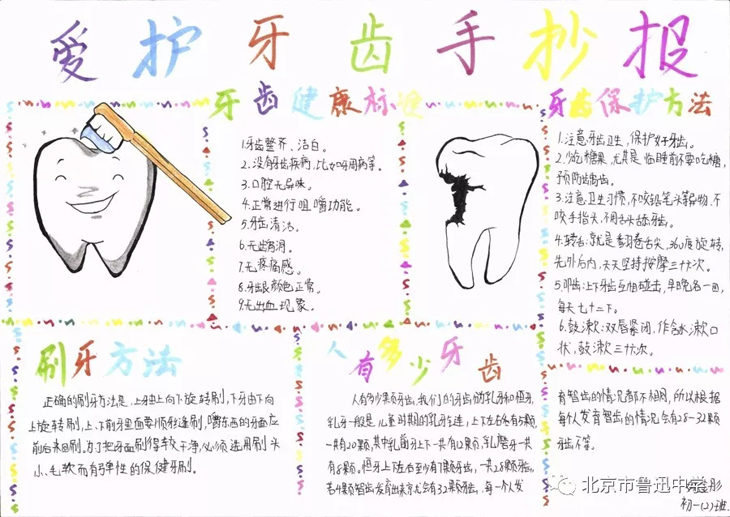 爱护牙齿手抄报
牙齿健康标准
1.牙齿整齐、洁白。
2.没有牙齿疾病,比如牙周病等。
3.口腔无异味。
4.正常进行咀嚼功能。
5.牙齿清洁。
6.无龋洞。
7.无疼痛感。
8.牙龈颜色正常。
9.无出血现象。
牙齿保护方法
1.注意牙齿卫生,保护好牙齿。
2.少吃糖果,尤其是临睡前不要吃糖,
预防龋齿。
3.注意卫生习惯,不咬铅笔头等物,不
吮手指头,不用舌头舔牙齿。
4.转舌:就是翻卷舌头,360度旋转,
先外后内,天天坚持按摩三十六次。
5.叩齿:上下牙齿互相碰击,早晚各一回,
每天七十二下。
6.鼓漱:双唇紧闭,作含水漱口
状,鼓漱三十六次。
刷牙方法
正确的刷牙方法是,上牙由上向下旋转刷,下牙由下向
上旋转刷,上、下前牙里面要顺牙缝刷,嚼东西的牙面应
前后来回刷。为了把牙面刷得较干净,必须选用刷头
小、毛软而有弹性的保健牙刷。
人有多少牙齿
人有多少颗牙齿,我们的牙齿分乳牙和恒牙,
乳牙一般是儿童时期的乳牙
一共有20颗,其中乳前牙上下一共有12颗,乳磨牙一共
有8颗。恒牙上下左右至少有7颗牙齿,一共28颗牙齿。
若4颗智齿发育出来就会有32颗牙齿,每一个人发
育智齿的情况都不相同,所以根据
每个人发育智齿的情况会有28-32颗
牙齿不等。
北京市鲁迅中学
初一(2)班